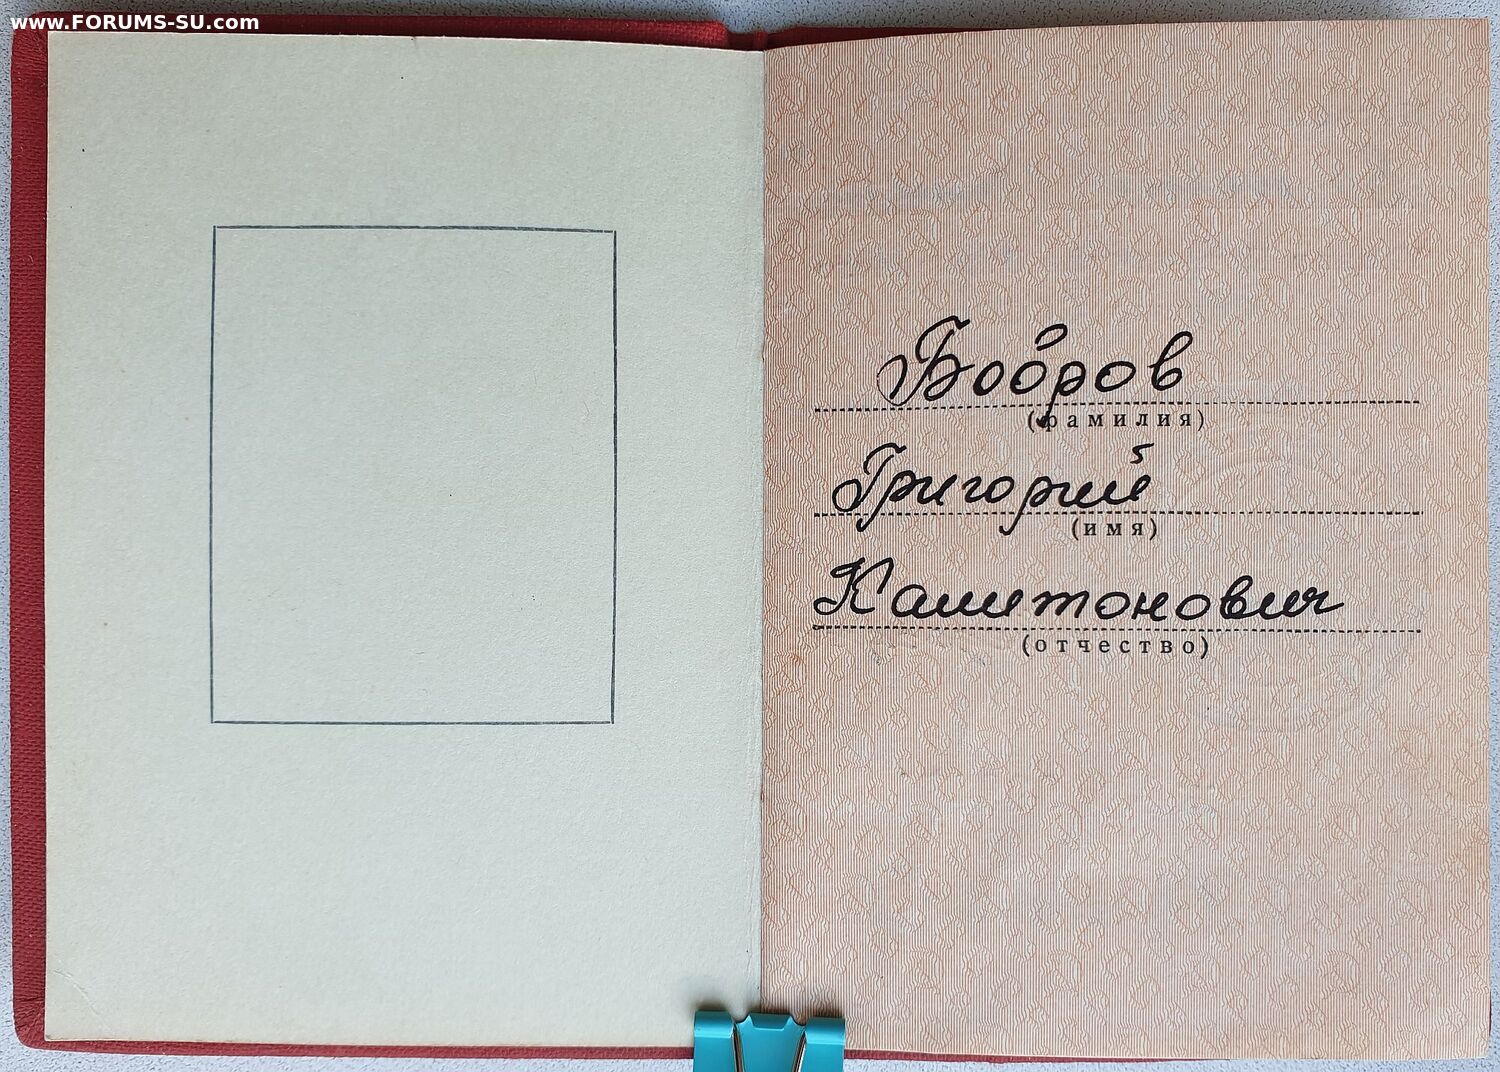 www.FORUMS-SU.com
Бобров
(фамилия)
Григорий
(имя)
Капитонович
(отчество)